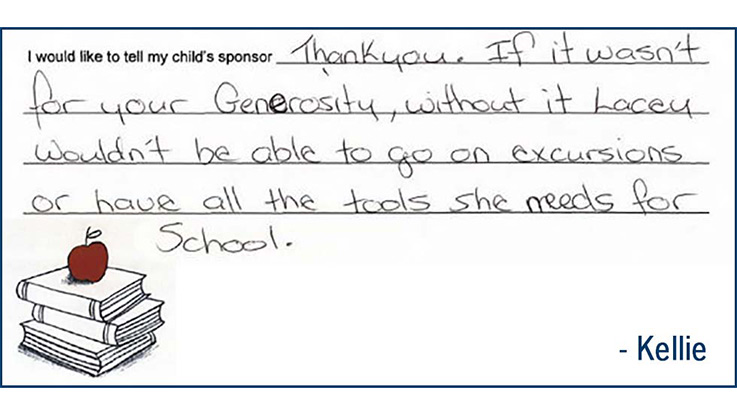 I would like to tell my child's sponsor Thankyou. If it wasn't
for your Generosity, without it Lacey
wouldn't be able to go on excursions
or have all the tools she needs for
School.
- Kellie